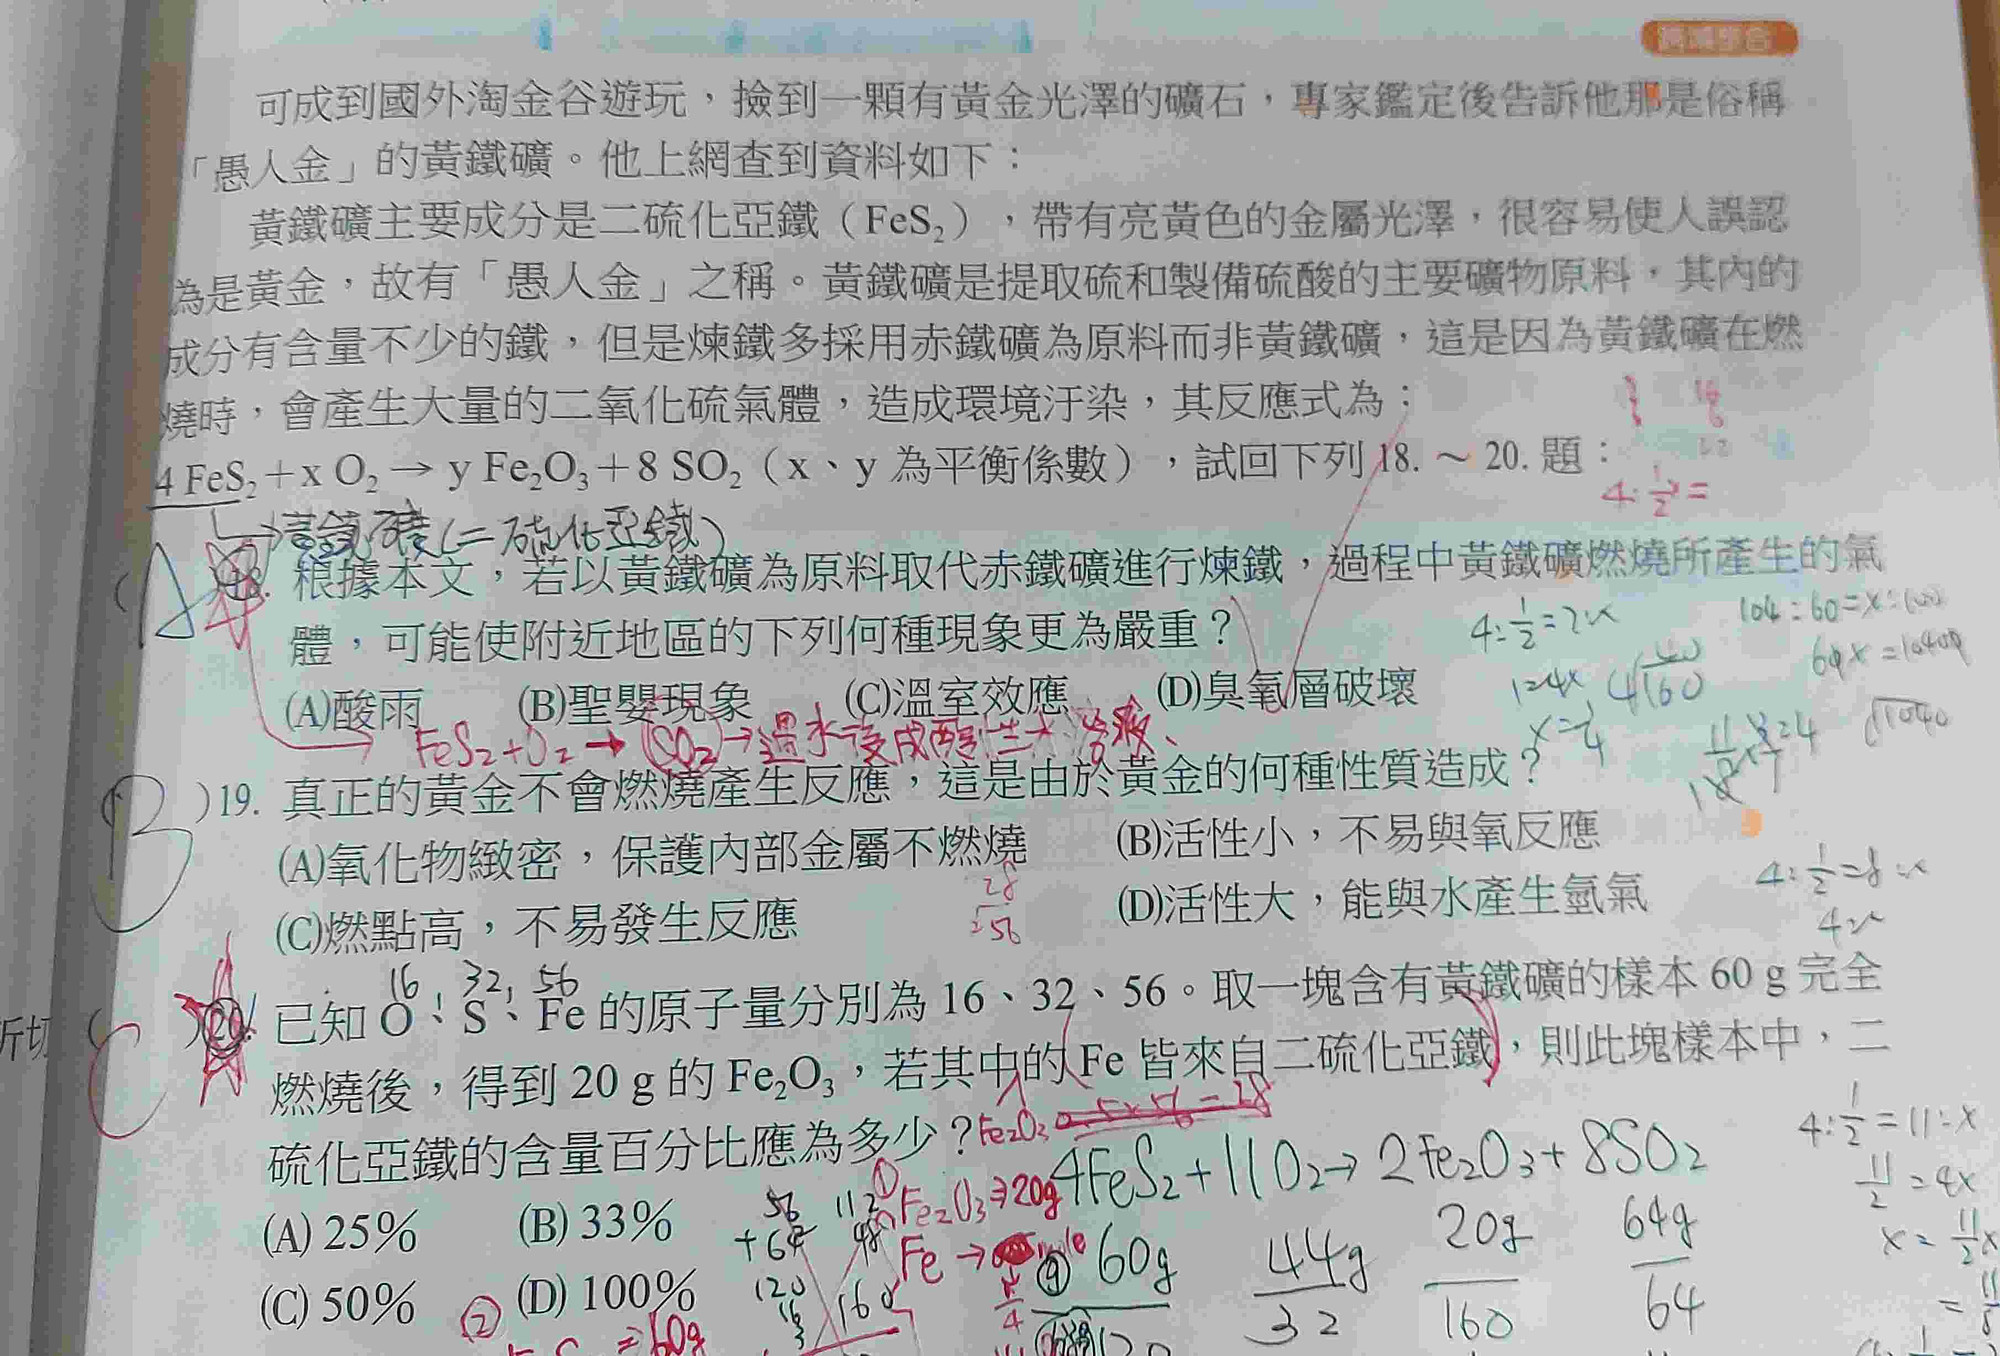 跨域整合
可成到國外淘金谷遊玩，撿到一顆有黃金光澤的礦石，專家鑑定後告訴他那是俗稱
「愚人金」的黃鐵礦。他上網查到資料如下：
黃鐵礦主要成分是二硫化亞鐵（FeS₂），帶有亮黃色的金屬光澤，很容易使人誤認
為是黃金，故有「愚人金」之稱。黃鐵礦是提取硫和製備硫酸的主要礦物原料，其內的
成分有含量不少的鐵，但是煉鐵多採用赤鐵礦為原料而非黃鐵礦，這是因為黃鐵礦在燃
燒時，會產生大量的二氧化硫氣體，造成環境汙染，其反應式為：
4 FeS₂＋x O₂→ y Fe₂O₃＋8 SO₂（x、y 為平衡係數），試回下列 18. ～ 20. 題：
4:1/2=
(二硫化亞鐵)
A
18. 根據本文，若以黃鐵礦為原料取代赤鐵礦進行煉鐵，過程中黃鐵礦燃燒所產生的氣
體，可能使附近地區的下列何種現象更為嚴重？
4:1/2=2:x
104:60=x:100
(A)酸雨 (B)聖嬰現象 (C)溫室效應 (D)臭氧層破壞
FeS₂+O₂→SO₂→過水後成酸性水溶液、
B
)19. 真正的黃金不會燃燒產生反應，這是由於黃金的何種性質造成？
(A)氧化物緻密，保護內部金屬不燃燒 (B)活性小，不易與氧反應
(C)燃點高，不易發生反應 (D)活性大，能與水產生氫氣
28
56
4:1/2=8:x
16 32 56
C
)20. 已知 O、S、Fe 的原子量分別為 16、32、56。取一塊含有黃鐵礦的樣本 60 g 完全
燃燒後，得到 20 g 的 Fe₂O₃，若其中的 Fe 皆來自二硫化亞鐵，則此塊樣本中，二
硫化亞鐵的含量百分比應為多少？
Fe₂O₃
4FeS₂+11O₂→2Fe₂O₃+8SO₂
4:1/2=11:x
11/2=4x
(A) 25% (B) 33%
(C) 50% (D) 100%
56
+64
120
112
48
160
Fe₂O₃⇒20g
Fe→
60g
44g
32
20g
160
64g
64
②
⇒60g